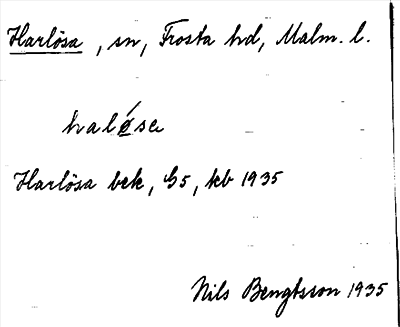 Harlösa, sn, Frosta hd, Malm. l.
halǿsa
Harlösa bek, G5, kb 1935
Nils Bengtsson 1935